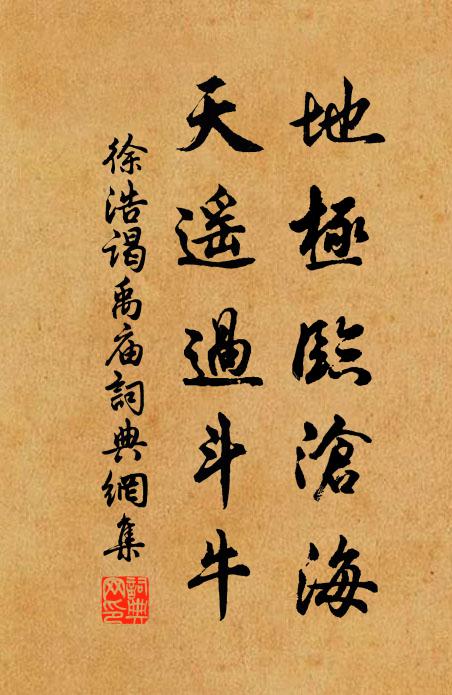 地極臨滄海
天遥過斗牛
徐浩謁禹庙詞典網集
詞典网印